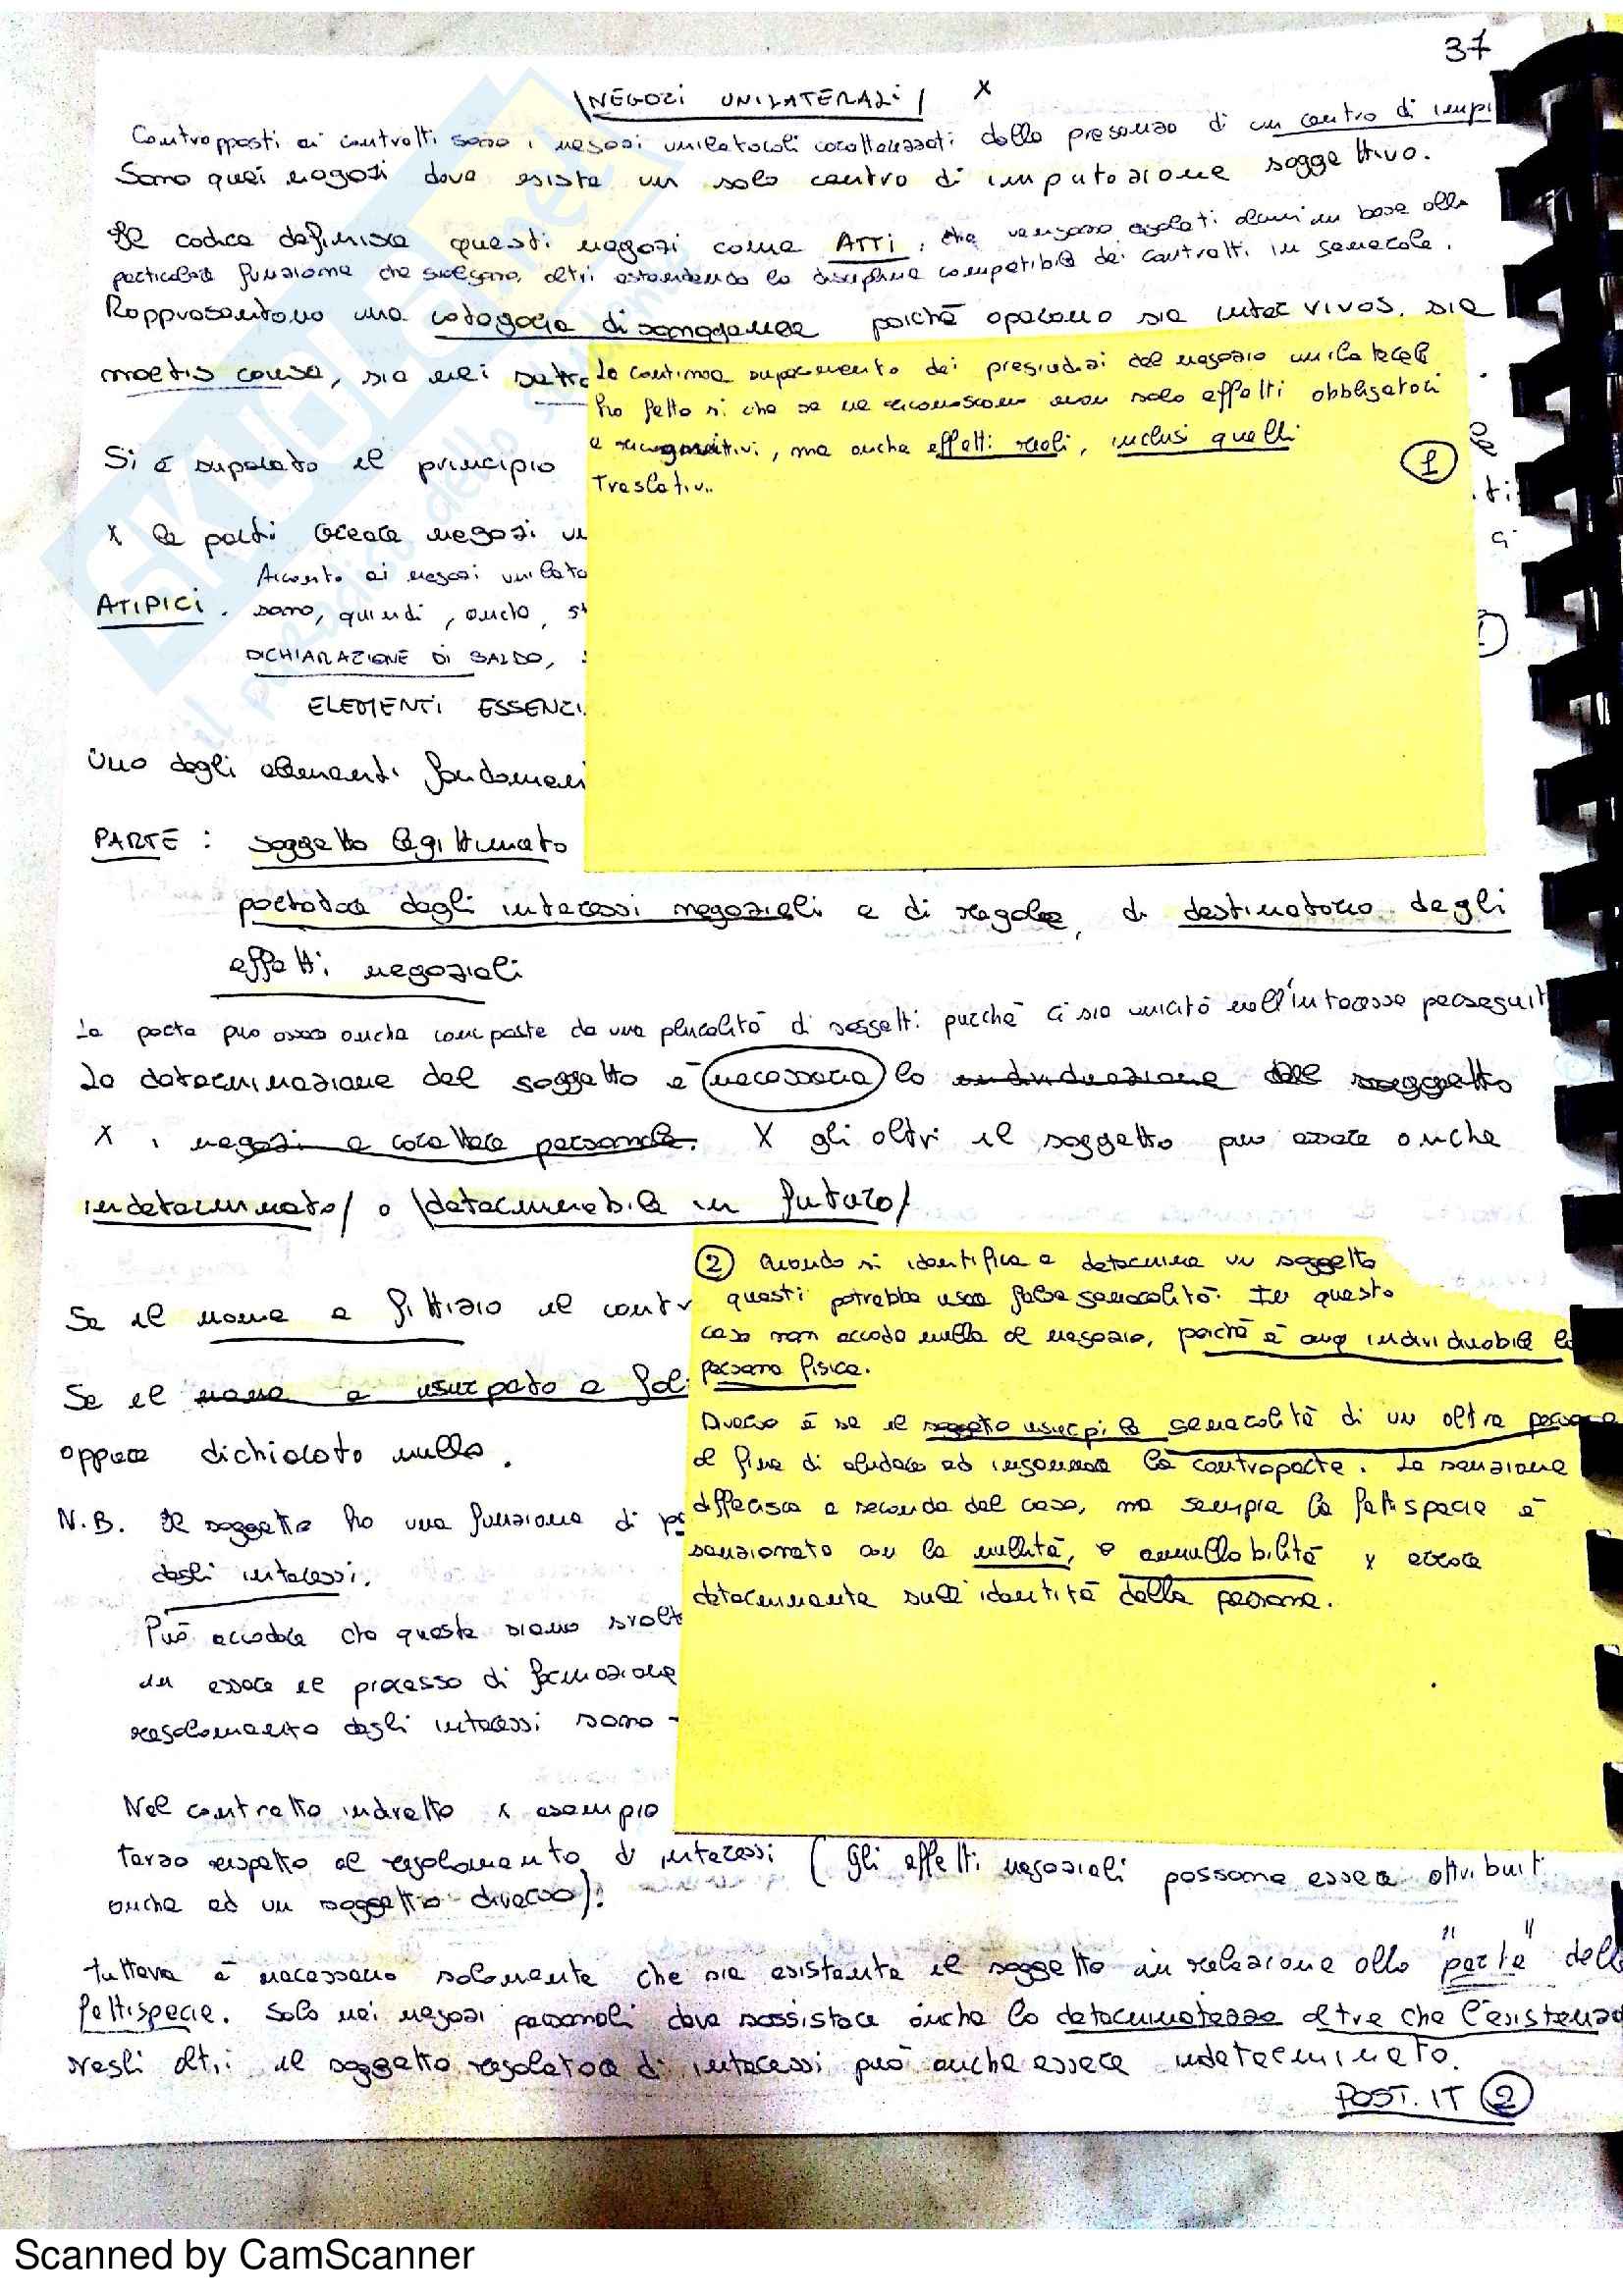 37
NEGOZI UNILATERALI X
Contrapposti ai contratti sono i negozi unilaterali caratterizzati dalla presenza di un centro di impu
Sono quei negozi dove esiste un solo centro di imputazione soggettivo.
Il codice definisce questi negozi come ATTI, che vengono regolati alcuni in base alla
particolare funzione che svolgono, altri estendendo la disciplina compatibile dei contratti in generale.
Rappresentano una categoria disomogenea poichè operano sia inter vivos, sia
mortis causa, sia nei
La continua superamento dei pregiudizi del negozio unilaterale
ha fatto si che se ne riconoscono non solo effetti obbligatori
e ricognitivi, ma anche effetti reali, inclusi quelli
Traslativi.
1
Si è superato il principio
X le parti creare negozi
Accanto ai negozi unilate
ATIPICI. sono, quindi, anche,
DICHIARAZIONE DI SALDO,
ELEMENTI ESSENZI
Uno degli elementi fondamen
PARTE: soggetto legittimato
portatore degli interessi negoziali e di regole, di destinatario degli
effetti negoziali
La parte può essere anche composta da una pluralità di soggetti purchè ci sia unicità nell'interesse perseguit
La determinazione del soggetto è necessaria la individuazione del soggetto
X i negozi a carattere personale. X gli altri il soggetto può essere anche
indeterminato/ o determinabile in futuro/
2 Quando si identifica e determina un soggetto
questi potrebbe usare false generalità. In questo
caso non accade nulla al negozio, poichè è cmq individuabile la
persona fisica.
Diverso è se il soggetto usurpi le generalità di un altra persona
al fine di eludere ed ingannare la controparte. La sanzione
differisce a seconda del caso, ma sempre la fattispecie è
sanzionata con la nullità, o annullabilità x errore
determinante sull'identità della persona.
Se il nome è fittizio il contr
Se il nome è usurpato e
oppure dichiarato nullo.
N.B. Il soggetto ha una funzione di
degli interessi.
Può accadere che queste siano svolte
in essere il processo di formazione
regolamento degli interessi sono
Nel contratto indiretto x esempio
terzo rispetto al regolamento di interessi (Gli effetti negoziali possono essere attribuit
anche ad un soggetto diverso).
tuttavia è necessario solamente che sia esistente il soggetto in relazione alla "parte" dell
fattispecie. Solo nei negozi personali deve sussistere anche la determinatezza oltre che l'esistenza
negli altri il soggetto regolatore di interessi può anche essere indeterminato.
POST.IT 2
Scanned by CamScanner